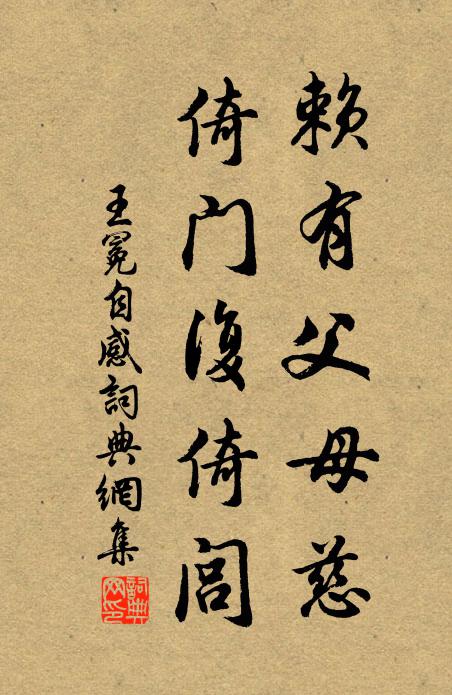 賴有父母慈
倚門復倚閭
王冕自感詞典網集
詞典網印